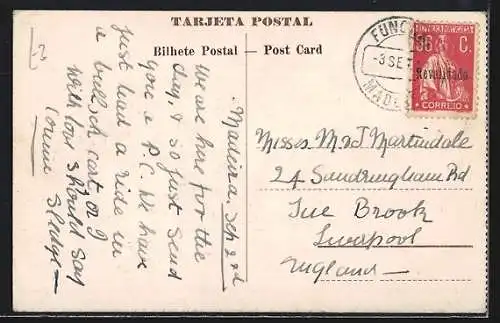 TARJETA POSTAL
Bilhete Postal — Post Card
Madeira. Sep 2nd
We are here for the
day, & so just send
you a P.C. We have
just had a ride in
a bullock cart, or I
with love should say
Sledge —
Connie
FUNC
-3 SE
MADE
96 C.
Revalidado
CORREIO
Misses M & J Martindale
24 Sandringham Rd
Tue Brook
Liverpool
England —